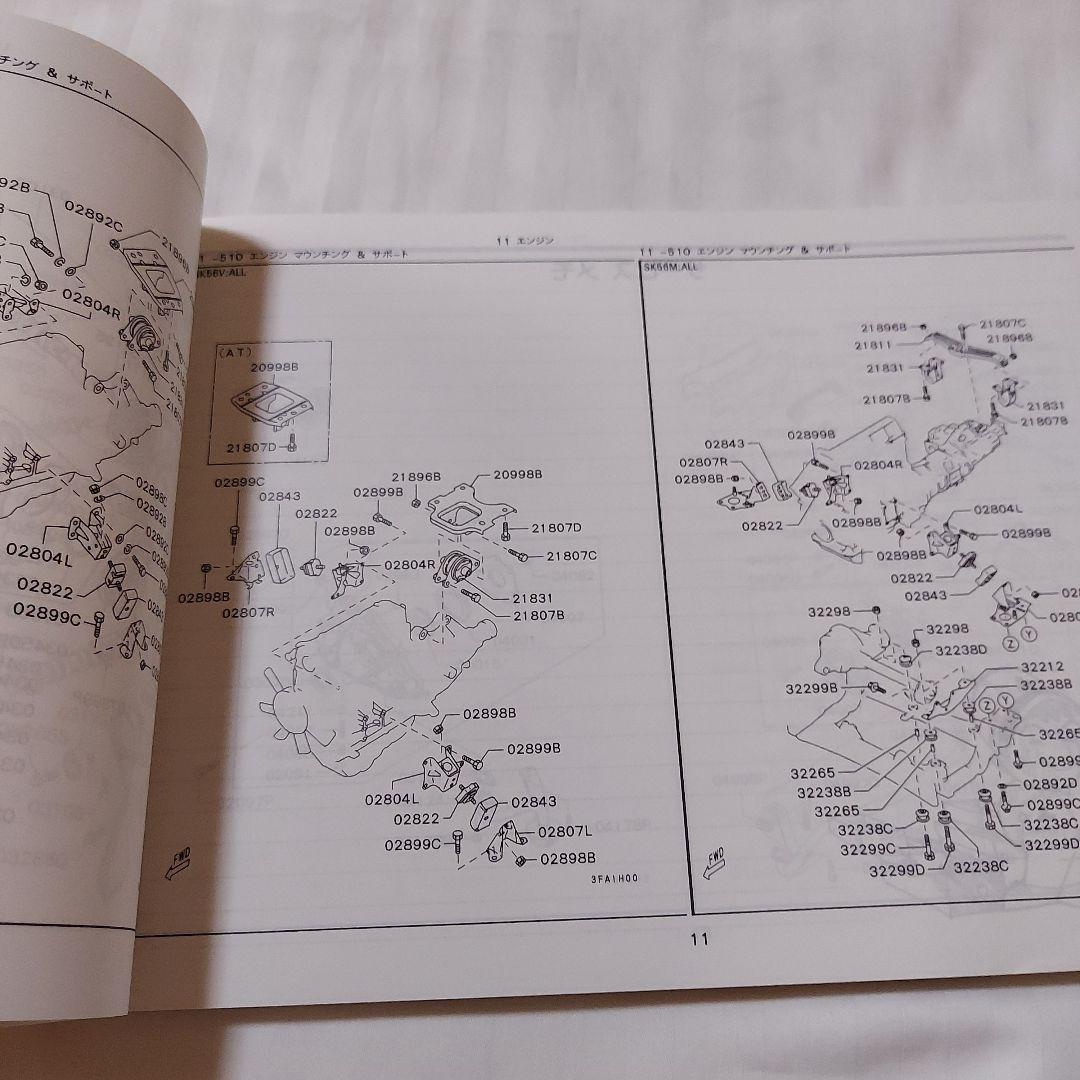 チング & サポート
92B
02892C
21896B
02804R
02898C
02892B
02804L
02822
02899C
11 エンジン
-510 エンジン マウンチング & サポート
SK56V;ALL
(AT)
20998B
21807D
02899C
02843
02822
02898B
02807R
21896B
02899B
20998B
02898B
02804R
21807D
21807C
21831
21807B
02898B
02899B
02804L
02822
02843
02899C
02807L
02898B
FWD
3FA1H00
11 -510 エンジン マウンチング & サポート
SK56M;ALL
21896B
21807C
21811
21896B
21831
21807B
21831
21807B
02843
02899B
02807R
02804R
02898B
02822
02898B
02804L
02899B
02898B
02822
02843
Z
Y
32298
32298
32238D
32212
32299B
32238B
Z
Y
32265
32265
32238B
32265
02892D
02899C
32238C
32238C
32299C
32299D
32299D
32238C
FWD
11